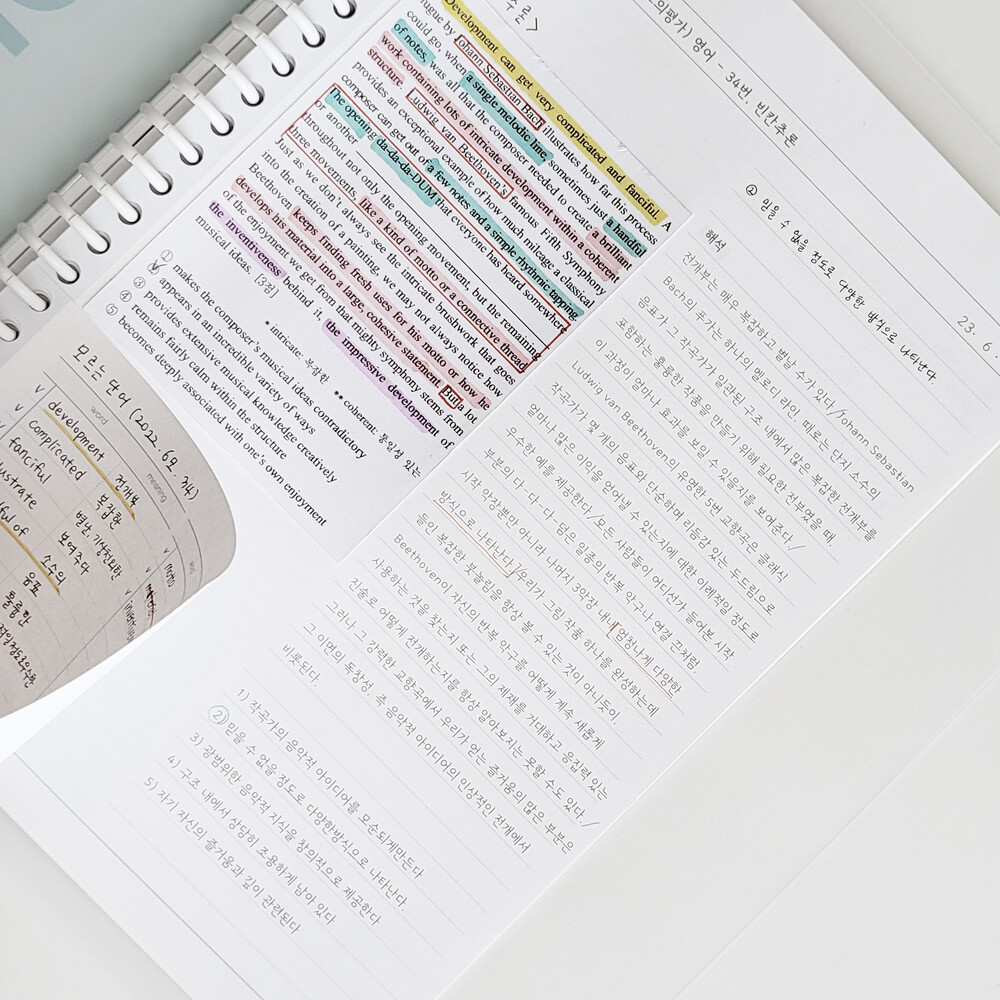 의평가) 영어 - 34번, 빈칸추론
23. 6
② 믿을 수 없을 정도로 다양한 방식으로 나타난다
Development can get very complicated and fanciful. A
fugue by Johann Sebastian Bach illustrates how far this process
could go, when a single melodic line, sometimes just a handful
of notes, was all that the composer needed to create a brilliant
work containing lots of intricate development within a coherent
structure. Ludwig van Beethoven's famous Fifth Symphony
provides an exceptional example of how much mileage a classical
composer can get out of a few notes and a simple rhythmic tapping.
The opening da-da-da-DUM that everyone has heard somewhere
or another
throughout not only the opening movement, but the remaining
three movements, like a kind of motto or a connective thread.
Just as we don't always see the intricate brushwork that goes
into the creation of a painting, we may not always notice how
Beethoven keeps finding fresh uses for his motto or how he
develops his material into a large, cohesive statement. But a lot
of the enjoyment we get from that mighty symphony stems from
the inventiveness behind it, the impressive development of
musical ideas. [3점]
* intricate: 복잡한 ** coherent: 통일성 있는
① makes the composer's musical ideas contradictory
② appears in an incredible variety of ways
③ provides extensive musical knowledge creatively
④ remains fairly calm within the structure
⑤ becomes deeply associated with one's own enjoyment
해석
전개부는 매우 복잡하고 별날 수가 있다/Johann Sebastian
Bach의 푸가는 하나의 멜로디 라인, 때로는 단지 소수의
음표가 그 작곡가가 일관된 구조 내에서 많은 복잡한 전개부를
포함하는 훌륭한 작품을 만들기 위해 필요한 전부였을 때,
이 과정이 얼마나 효과를 보일 수 있을지를 보여준다/
Ludwig van Beethoven의 유명한 5번 교향곡은 클래식
작곡가가 몇 개의 음표와 단순하며 리듬감 있는 두드림으로
얼마나 많은 이익을 얻어낼 수 있는지에 대한 이례적일 정도로
우수한 예를 제공한다/모든 사람들이 어디선가 들어본 시작
부분의 다-다-다-덤은 일종의 반복 악구나 연결 끈처럼,
시작 악장뿐만 아니라 나머지 3악장 내내 엄청나게 다양한
방식으로 나타난다/우리가 그림 작품 하나를 완성하는데
들이 복잡한 붓놀림을 항상 볼 수 있는 것이 아니듯이,
Beethoven이 자신의 반복 악구를 어떻게 계속 새롭게
사용하는 것을 찾는지 또는 그의 제재를 거대하고 응집력 있는
진술로 어떻게 전개하는지를 항상 알아보지는 못할 수도 있다/
그러나 그 강력한 교향곡에서 우리가 얻는 즐거움의 많은 부분은
그 이면의 독창성, 즉 음악적 아이디어의 인상적인 전개에서
비롯된다.
1) 작곡가의 음악적 아이디어를 모순되게만든다
② 믿을 수 없을 정도로 다양한방식으로 나타난다.
3) 광범위한 음악적 지식을 창의적으로 제공한다
4) 구조 내에서 상당히 조용하게 남아 있다
5) 자기 자신의 즐거움과 깊이 관련된다
모르는 단어 (2022. 6월. 34)
word meaning
development 전개부
complicated 복잡한
fanciful 별난, 기상천외한
보여주다
소수의
음표
훌륭한
motto